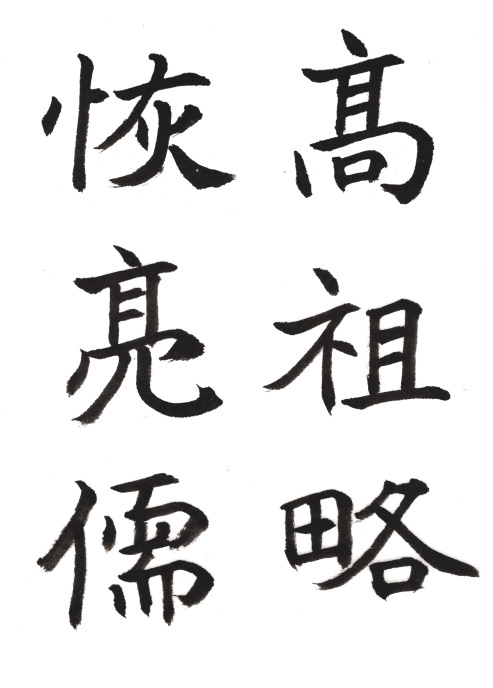 髙祖略
恢亮儒